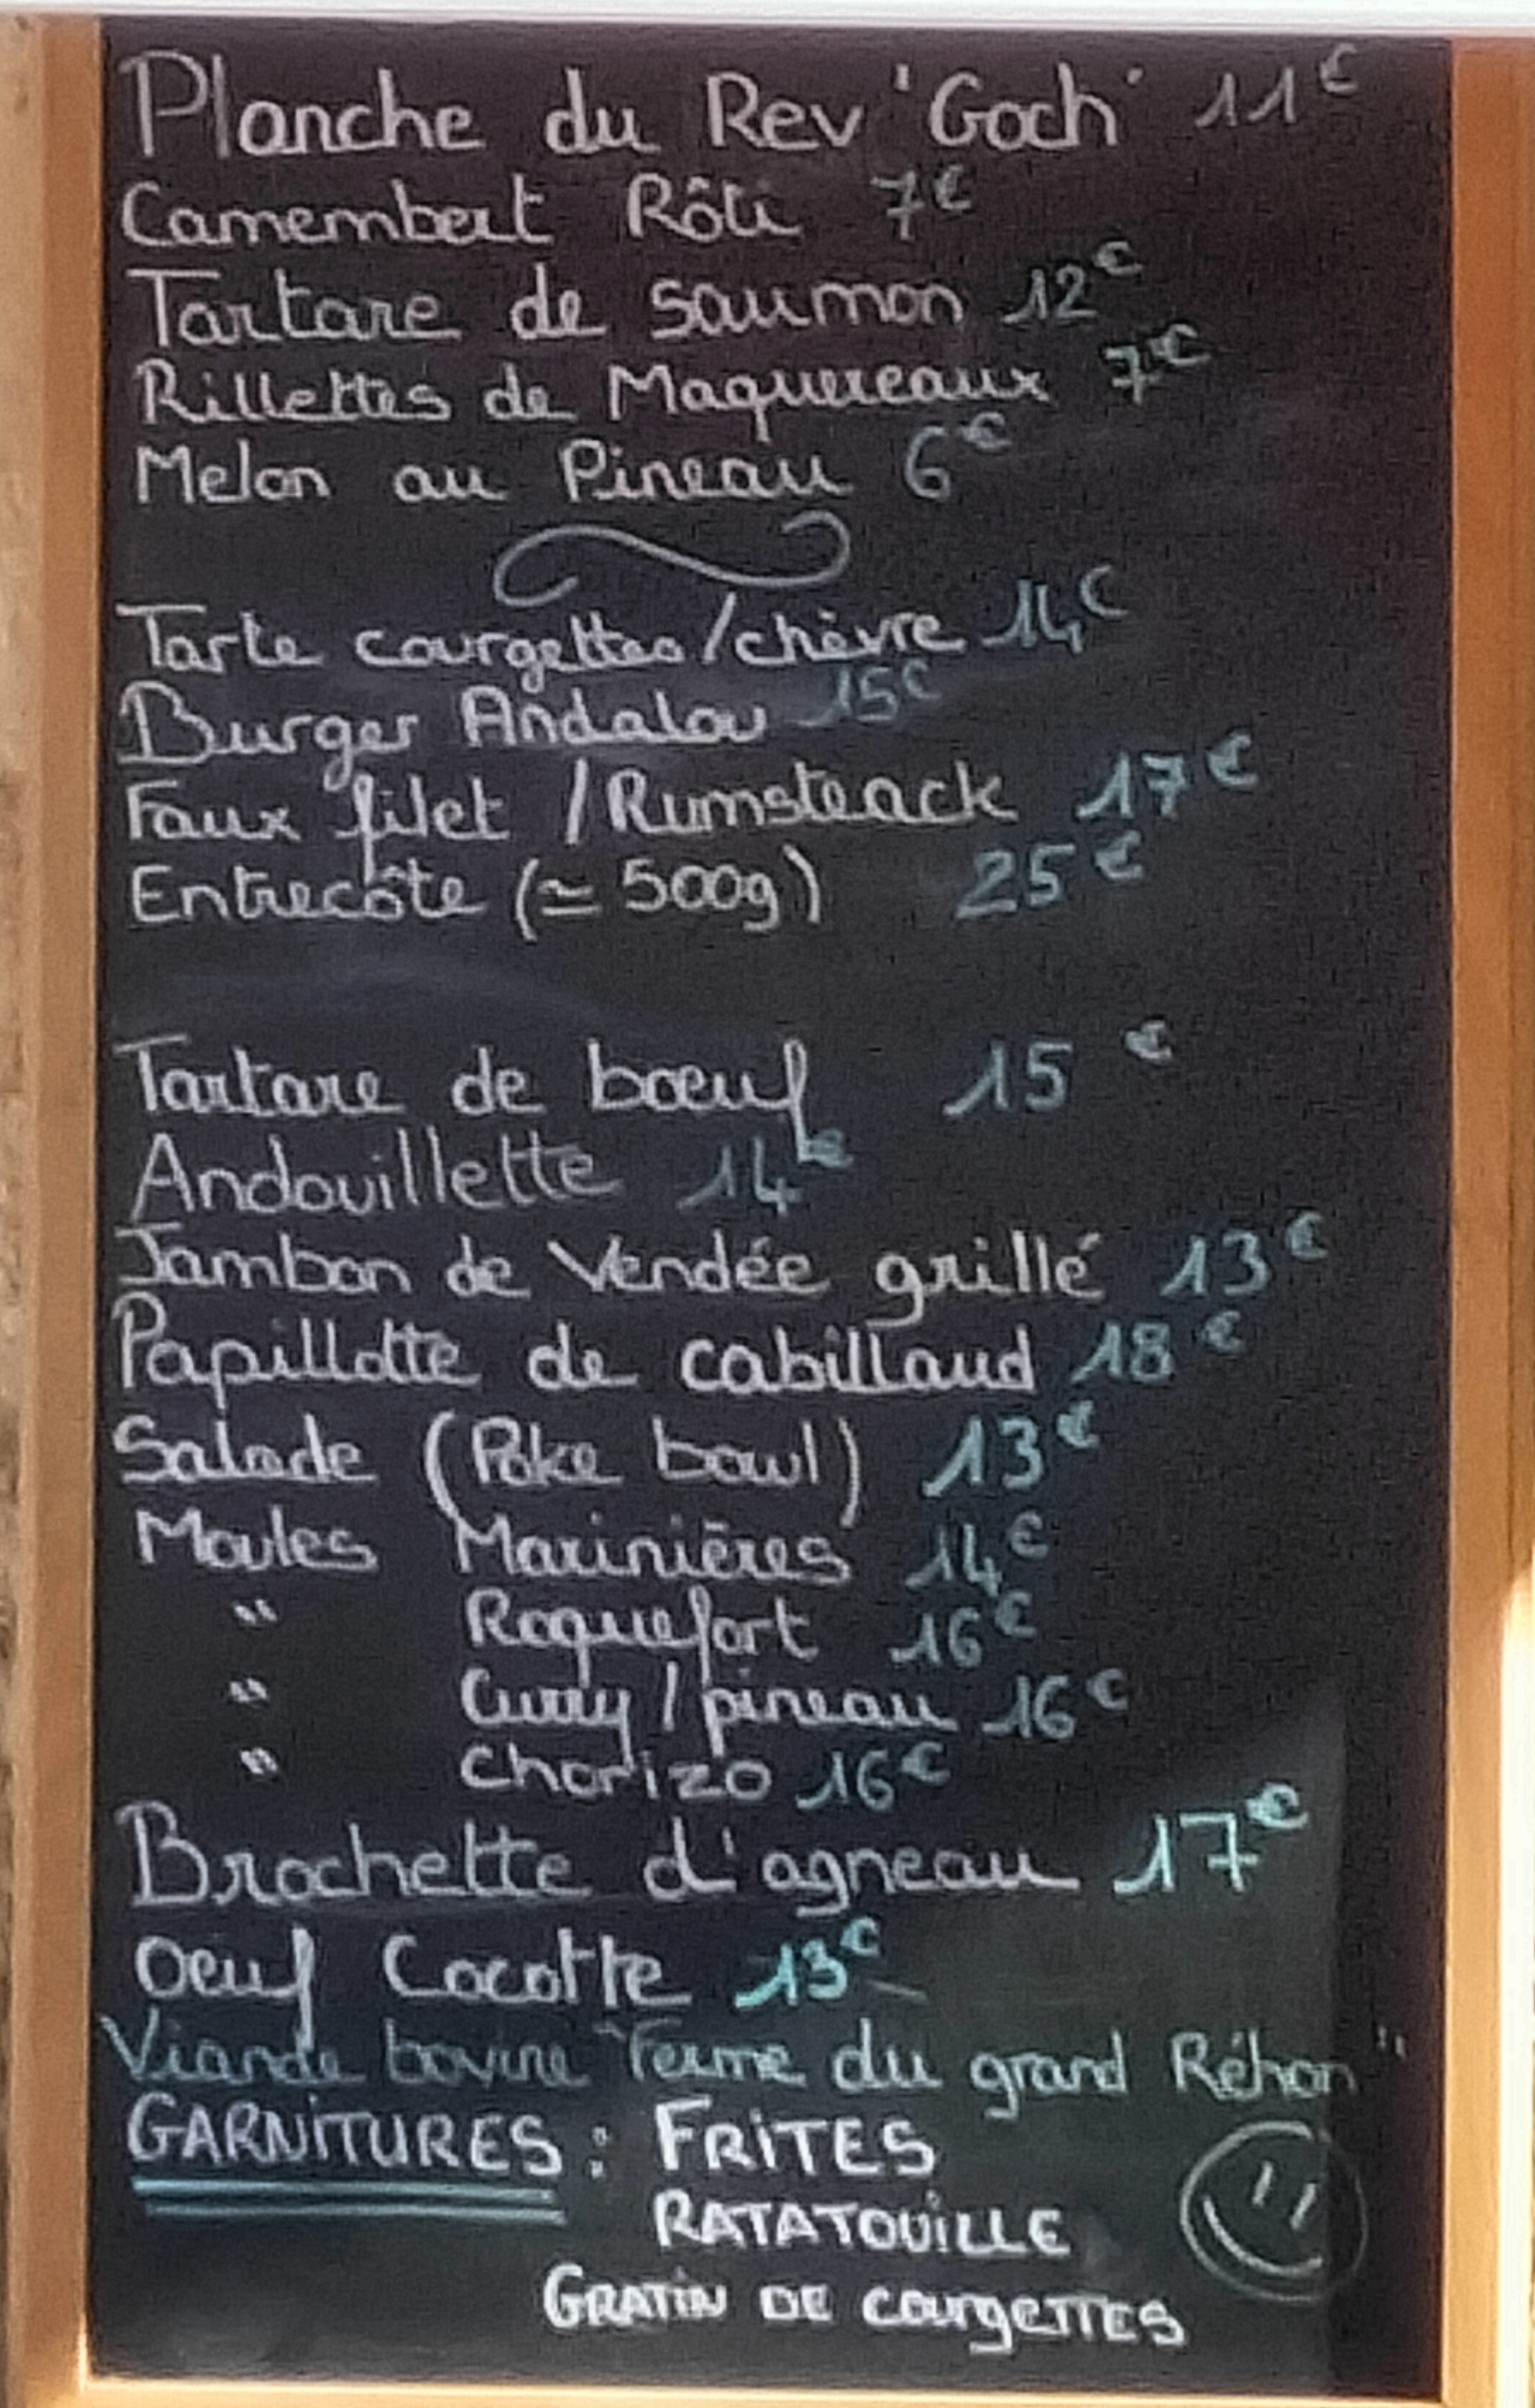 Planche du Rev 'Goch' 11€
Camembert Rôti 7€
Tartare de saumon 12€
Rillettes de Maquereaux 7€
Melon au Pineau 6€
Tarte courgettes/chèvre 14€
Burger Andalou 15€
Faux filet / Rumsteack 17€
Entrecôte (≃ 500g) 25€
Tartare de bœuf 15 €
Andouillette 14€
Jambon de Vendée grillé 13€
Papillotte de cabillaud 18€
Salade (Poke bowl) 13€
Moules Marinières 14€
" Roquefort 16€
" Curry / pineau 16€
" Chorizo 16€
Brochette d'agneau 17€
Oeuf Cocotte 13€
Viande bovine "Ferme du grand Réhon"
GARNITURES : FRITES
RATATOUILLE
GRATIN DE courgeTTES